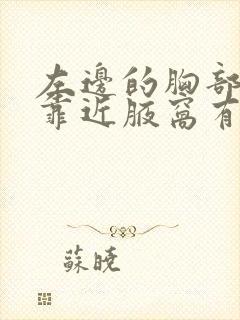 左邊的胸部
靠近腋窩有
蘇曉